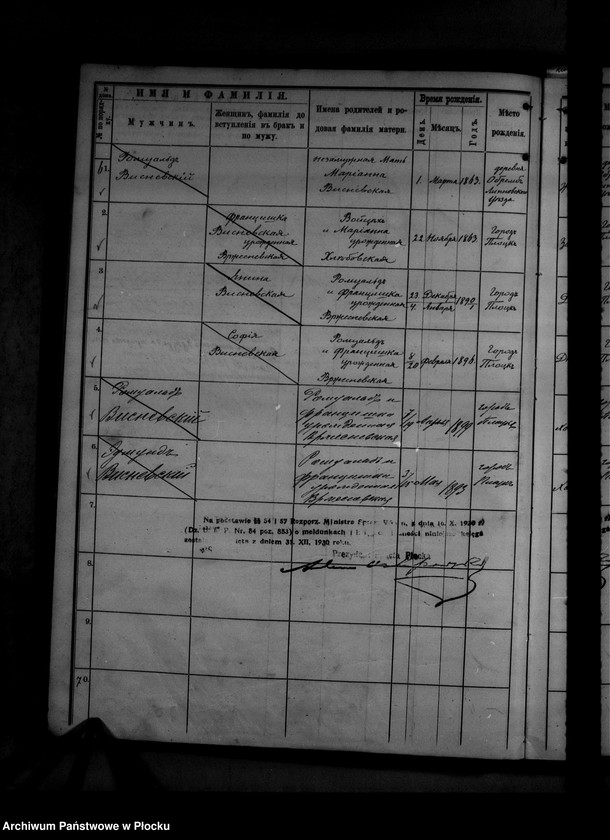 ИМЯ И ФАМИЛІЯ.
Мужчинъ.
Женщинъ, фамилія до
вступленія въ бракъ и
по мужу.
Имена родителей и ро-
довая фамилія матери.
Время рожденія.
День.
Мѣсяцъ.
Годъ.
Мѣсто
рожденія.
1.
Ромуальдъ
Висневскій
незамужняя Мать
Маріанна
Висневская
1 Марта 1863
деревня
Липновскаго
уѣзда
2.
Францишка
Висневская
урожденная
Вржесневская
Войцѣхъ
и Маріанна
урожденная
22 Ноября 1863
Городъ
Плоцкъ
3.
Янина
Висневская
Ромуальдъ
и Францишка
урожденная
Вржесневская
23 Декабря
4 Января
Городъ
Плоцкъ
4.
Софія
Висневская
Ромуальдъ
и Францишка
урожденная
Вржесневская
8/20 Февраля 1896
Городъ
Плоцкъ
5.
Ромуальдъ
Висневскій
Ромуальдъ и
Францишка
урожденная
Вржесневская
7/19 Марта 1899
городъ
Плоцкъ
6.
Эдмундъ
Висневскій
Ромуальдъ и
Францишка
урожденная
Вржесневская
3/15 Мая 1893
городъ
Плоцкъ
7.
Na podstawie §§ 54 i 57 Rozporz. Ministra Spraw z dnia 16. X. 1930 r.
Nr. 84 poz. 653) o meldunkach i księga
z dniem 31. XII. 1930 roku.
Płocka
8.
9.
10.
Archiwum Państwowe w Płocku